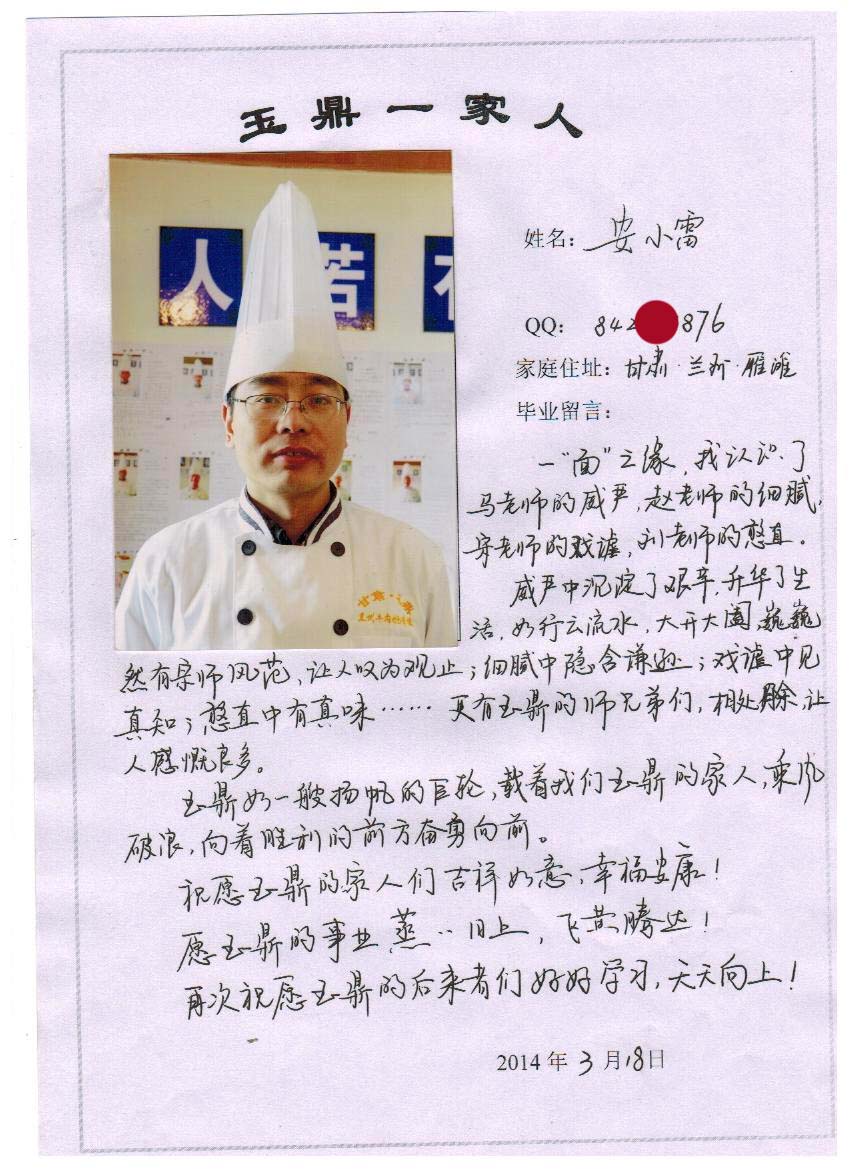 玉鼎一家人
人 若 在
姓名：安小雷
QQ： 842 876
家庭住址：甘肃·兰州·雁滩
毕业留言：
一“面”之缘，我认识了
马老师的威严，赵老师的细腻，
宋老师的戏谑，刘老师的憨直。
威严中沉淀了艰辛，升华了生
活，如行云流水，大开大阖，巍巍
然有宗师风范，让人叹为观止；细腻中隐含谦逊；戏谑中见
真知；憨直中有真味……更有玉鼎的师兄弟们，相处 ，让
人感慨良多。
玉鼎如一艘扬帆的巨轮，载着我们玉鼎的家人，乘风
破浪，向着胜利的前方奋勇向前。
祝愿玉鼎的家人们吉祥如意，幸福安康！
愿玉鼎的事业蒸蒸日上，飞黄腾达！
再次祝愿玉鼎的后来者们好好学习，天天向上！
2014年3月18日